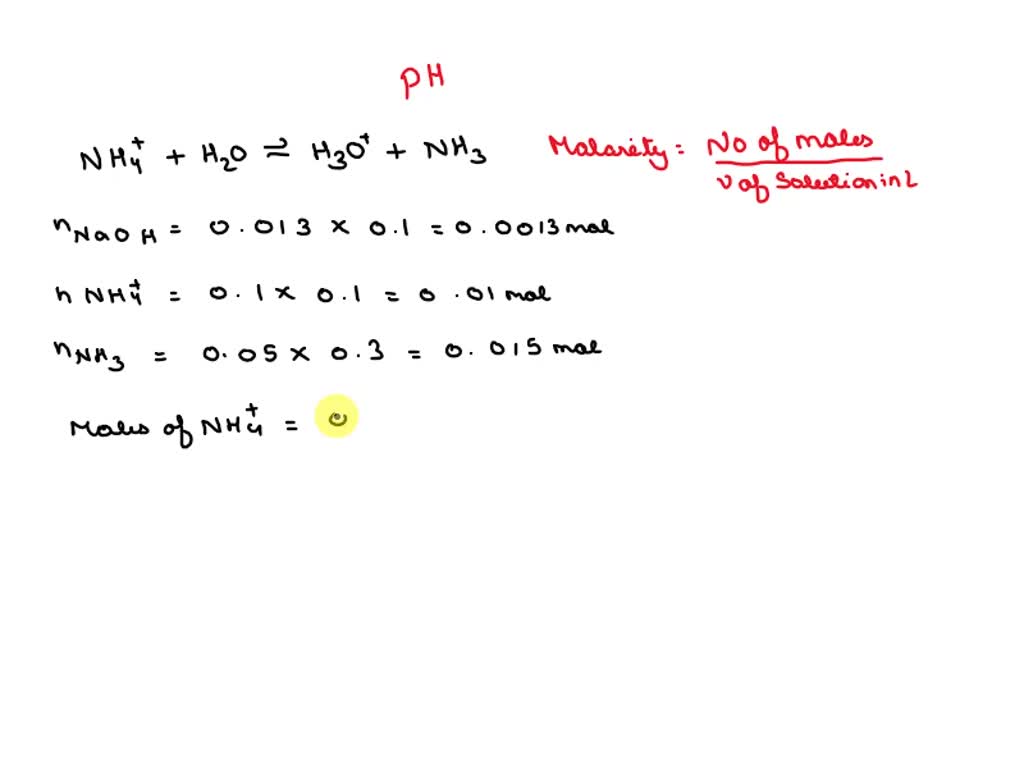 pH
NH₄⁺ + H₂O ⇌ H₃O⁺ + NH₃
Molarity = No of moles / V of Solution in L
nNaOH = 0.013 × 0.1 = 0.0013 mol
n NH₄⁺ = 0.1 × 0.1 = 0.01 mol
nNH₃ = 0.05 × 0.3 = 0.015 mol
Moles of NH₄⁺ = 0